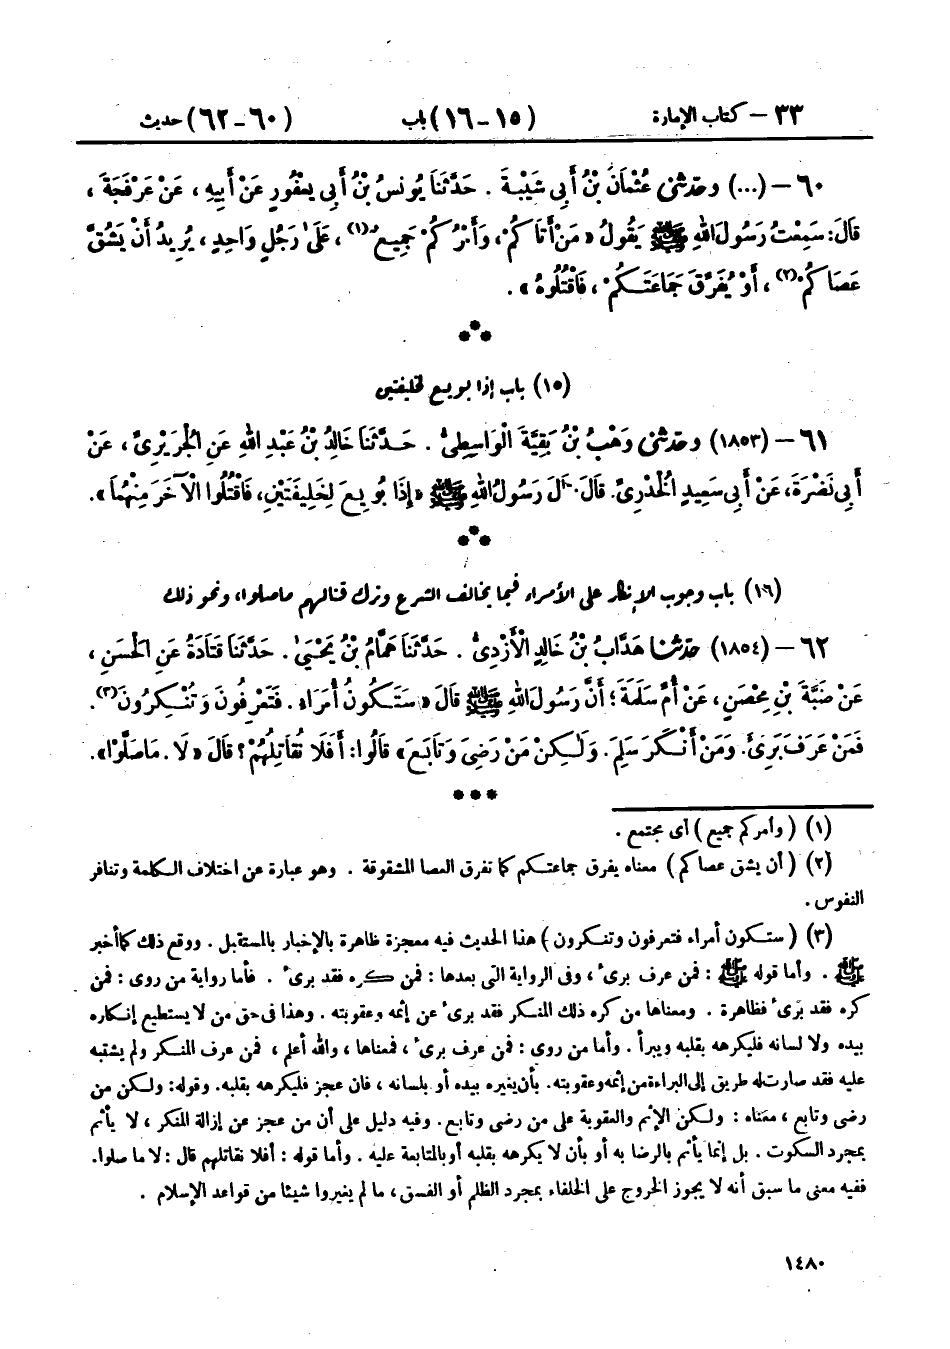 ٣٣ – كتاب الإمارة (١٥-١٦) باب (٦٠-٦٢) حديث
٦٠ – (...) وحدثني عُثْمَانُ بْنُ أَبِي شَيْبَةَ . حَدَّثَنَا يُونُسُ بْنُ أَبِي يَعْفُورٍ عَنْ أَبِيهِ ، عَنْ عَرْفَجَةَ ،
قَالَ: سَمِعْتُ رَسُولَ اللهِ ﷺ يَقُولُ «مَنْ أَتَاكُمْ، وَأَمْرُكُمْ جَمِيعٌ(١)، عَلَىٰ رَجُلٍ وَاحِدٍ ، يُرِيدُ أَنْ يَشُقَّ
عَصَاكُمْ(٢) ، أَوْ يُفَرِّقَ جَمَاعَتَكُمْ ، فَاقْتُلُوهُ» .
***
(١٥) باب إذا بويع لخليفتين
٦١ – (١٨٥٣) وحدثني وَهْبُ بْنُ بَقِيَّةَ الْوَاسِطِيُّ . حَدَّثَنَا خَالِدُ بْنُ عَبْدِ اللهِ عَنِ الْجُرَيْرِيِّ ، عَنْ
أَبِي نَضْرَةَ، عَنْ أَبِي سَعِيدٍ الْخُدْرِيِّ. قَالَ: قَالَ رَسُولُ اللهِ ﷺ «إِذَا بُويِعَ لِخَلِيفَتَيْنِ، فَاقْتُلُوا الْآخَرَ مِنْهُمَا».
***
(١٦) باب وجوب الإنكار على الأمراء فيما يخالف الشرع وترك قتالهم ماصلوا، ونحو ذلك
٦٢ – (١٨٥٤) حدثنا هَدَّابُ بْنُ خَالِدٍ الْأَزْدِيُّ . حَدَّثَنَا هَمَّامُ بْنُ يَحْيَىٰ . حَدَّثَنَا قَتَادَةُ عَنِ الْحَسَنِ ،
عَنْ ضَبَّةَ بْنِ مِحْصَنٍ ، عَنْ أُمِّ سَلَمَةَ ؛ أَنَّ رَسُولَ اللهِ ﷺ قَالَ «سَتَكُونُ أُمَرَاءُ . فَتَعْرِفُونَ وَتُنْكِرُونَ(٣).
فَمَنْ عَرَفَ بَرِئَ. وَمَنْ أَنْكَرَ سَلِمَ. وَلَٰكِنْ مَنْ رَضِيَ وَتَابَعَ» قَالُوا: أَفَلَا نُقَاتِلُهُمْ؟ قَالَ «لَا. مَاصَلَّوْا».
***
(١) ( وأمركم جميع ) أى مجتمع .
(٢) ( أن يشق عصاكم ) معناه يفرق جماعتكم كما تفرق العصا المشقوقة . وهو عبارة عن اختلاف الكلمة وتنافر
النفوس .
(٣) ( ستكون أمراء فتعرفون وتنكرون ) هذا الحديث فيه معجزة ظاهرة بالإخبار بالمستقبل . ووقع ذلك كما أخبر
ﷺ . وأما قوله ﷺ : فمن عرف برئ ، وفى الرواية التى بعدها : فمن كره فقد برئ . فأما رواية من روى : فمن
كره فقد برئ فظاهرة . ومعناها من كره ذلك المنكر فقد برئ عن إثمه وعقوبته . وهذا فى حق من لا يستطيع إنكاره
بيده ولا لسانه فليكرهه بقلبه ويبرأ . وأما من روى : فمن عرف برئ ، فمعناها ، والله أعلم ، فمن عرف المنكر ولم يشتبه
عليه فقد صارت له طريق إلى البراءة من إثمه وعقوبته. بأن يغيره بيده أو بلسانه ، فان عجز فليكرهه بقلبه. وقوله: ولكن من
رضى وتابع ، معناه : ولكن الإثم والعقوبة على من رضى وتابع . وفيه دليل على أن من عجز عن إزالة المنكر ، لا يأثم
بمجرد السكوت . بل إنما يأثم بالرضا به أو بأن لا يكرهه بقلبه أو بالمتابعة عليه . وأما قوله : أفلا نقاتلهم قال : لا ما صلوا.
ففيه معنى ما سبق أنه لا يجوز الخروج على الخلفاء بمجرد الظلم أو الفسق ، ما لم يغيروا شيئا من قواعد الإسلام .
١٤٨٠